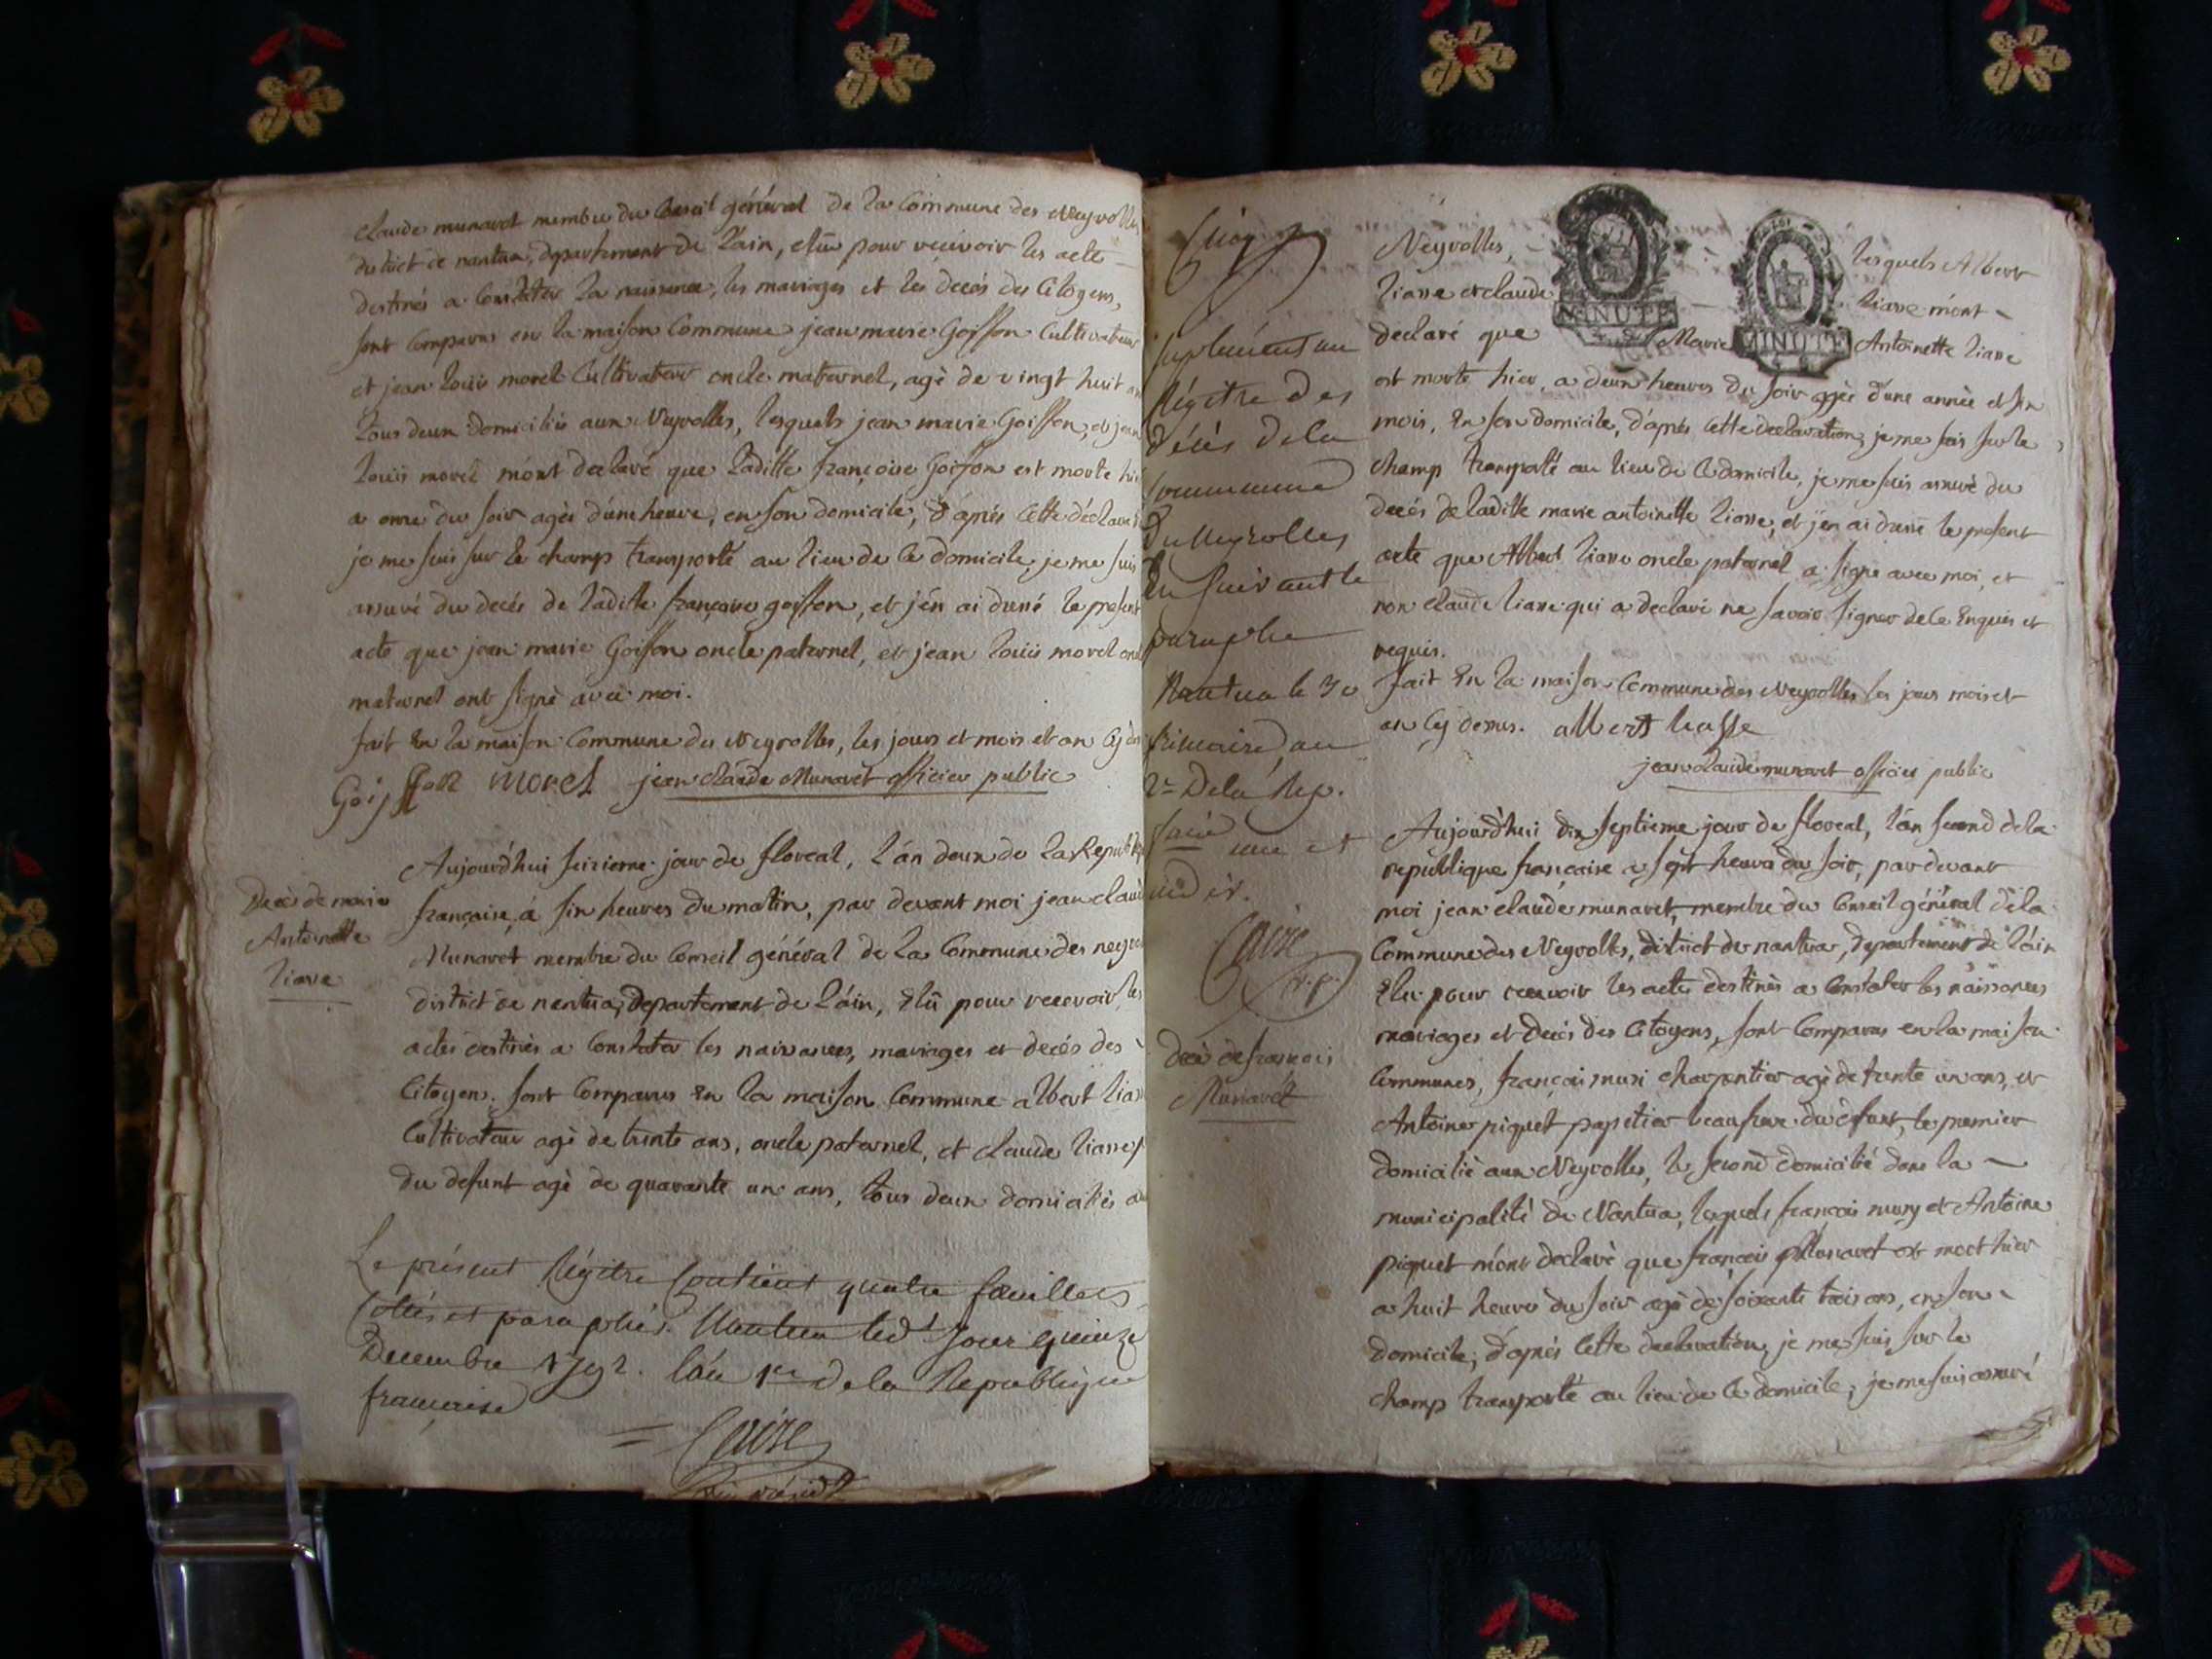 claude munavet membre du Conseil général de la Commune des Neyrolles
district de nantua, departement de l'ain, elû pour recevoir les acte
destinés a Constater la naissance, les mariages et les decés des Citoyens,
sont Comparus en la maison Commune jean marie Goiffon Cultivateur
et jean louis morel Cultivateur oncle maternel, agé de vingt huit an
tous deux domiciliés aux Neyrolles, lesquels jean marie Goiffon, et jean
louis morel m'ont declaré que laditte françoise Goiffon est morte hier
a onze du soir agée d'une heure, en son domicile, d'aprés cette déclara
je me suis sur le champ transporté au lieu de ce domicile, je me suis
assuré du decés de laditte françoise goiffon, et j'en ai dressé le présent
acte que jean marie Goiffon oncle paternel, et jean louis morel oncle
maternel ont signé avec moi.
fait En la maison Commune des Neyrolles, les jours et mois et an cy des
Goiffon morel jean claude Munavet officier public
Decés de marie
Antoinette
liasse
Aujourd'hui seizieme jour de floreal, l'an deux de la Republique
française, á six heures du matin, par devant moi jean claude
Munavet membre du Conseil général de la Commune des neyro
district de nantua, departement de l'ain, Elû pour recevoir les
actes destinés a Constater les naissances, mariages et decés des
Citoyens. sont Comparus En la maison Commune albert lias
Cultivateur agé de trente ans, oncle paternel, et claude liasse p
du defunt agé de quarante un ans, tous deux domiciliés aux
Le présent Régitre Contient quatre feuillets
Cottés et paraphés. Nantua led.t jour quinze
Decembre 1792. l'an 1er de la Republique
française
suplément au
Régitre des
décés de la
Commune
de Neyrolles
du suivant le
paraphe
Nantua le 30
frimaire, an
2e De la Rep.
une et
indiv.
Decés de francois
Munavet
Neyrolles, lesquels Albert
liasse et claude liasse m'ont
declaré que Marie Antoinette liasse
MINUTE
MINUTE
est morte hier, a deux heures du soir agée d'une année et six
mois, En son domicile, d'aprés cette declaration, je me suis sur le
champ transporté au lieu de ce domicile, je me suis assuré du
decés de laditte marie antoinette liasse, et j'en ai dressé le present
acte que Albert liasse oncle paternel a signé avec moi, et
non claude liasse qui a declaré ne savoir signer de ce Enquis et
requis.
fait En la maison Commune des Neyrolles les jours mois et
an cy dessus. albert liasse
jean claude munavet officier public
Aujourd'hui dix septieme jour de floreal, l'an second de la
republique française a sept heures du soir, par devant
moi jean claude munavet, membre du Conseil général de la
Commune des Neyrolles, district de nantua, departement de l'ain
Elu pour recevoir les actes destinés a Constater les naissances
mariages et decés des Citoyens, sont Comparus en la maison
Communes, françois muri charpentier agé de trente un ans, et
Antoine piquet papetier beaufrere du défunt, le premier
domicilié aux Neyrolles, le second domicilié dans la
municipalité de Nantua, lesquels françois mury et Antoine
piquet m'ont declaré que françois Munavet est mort hier
a huit heures du soir agé de soixante trois ans, en son
domicile, d'aprés cette declaration, je me suis sur le
champ transporté au lieu de ce domicile, je me suis assuré